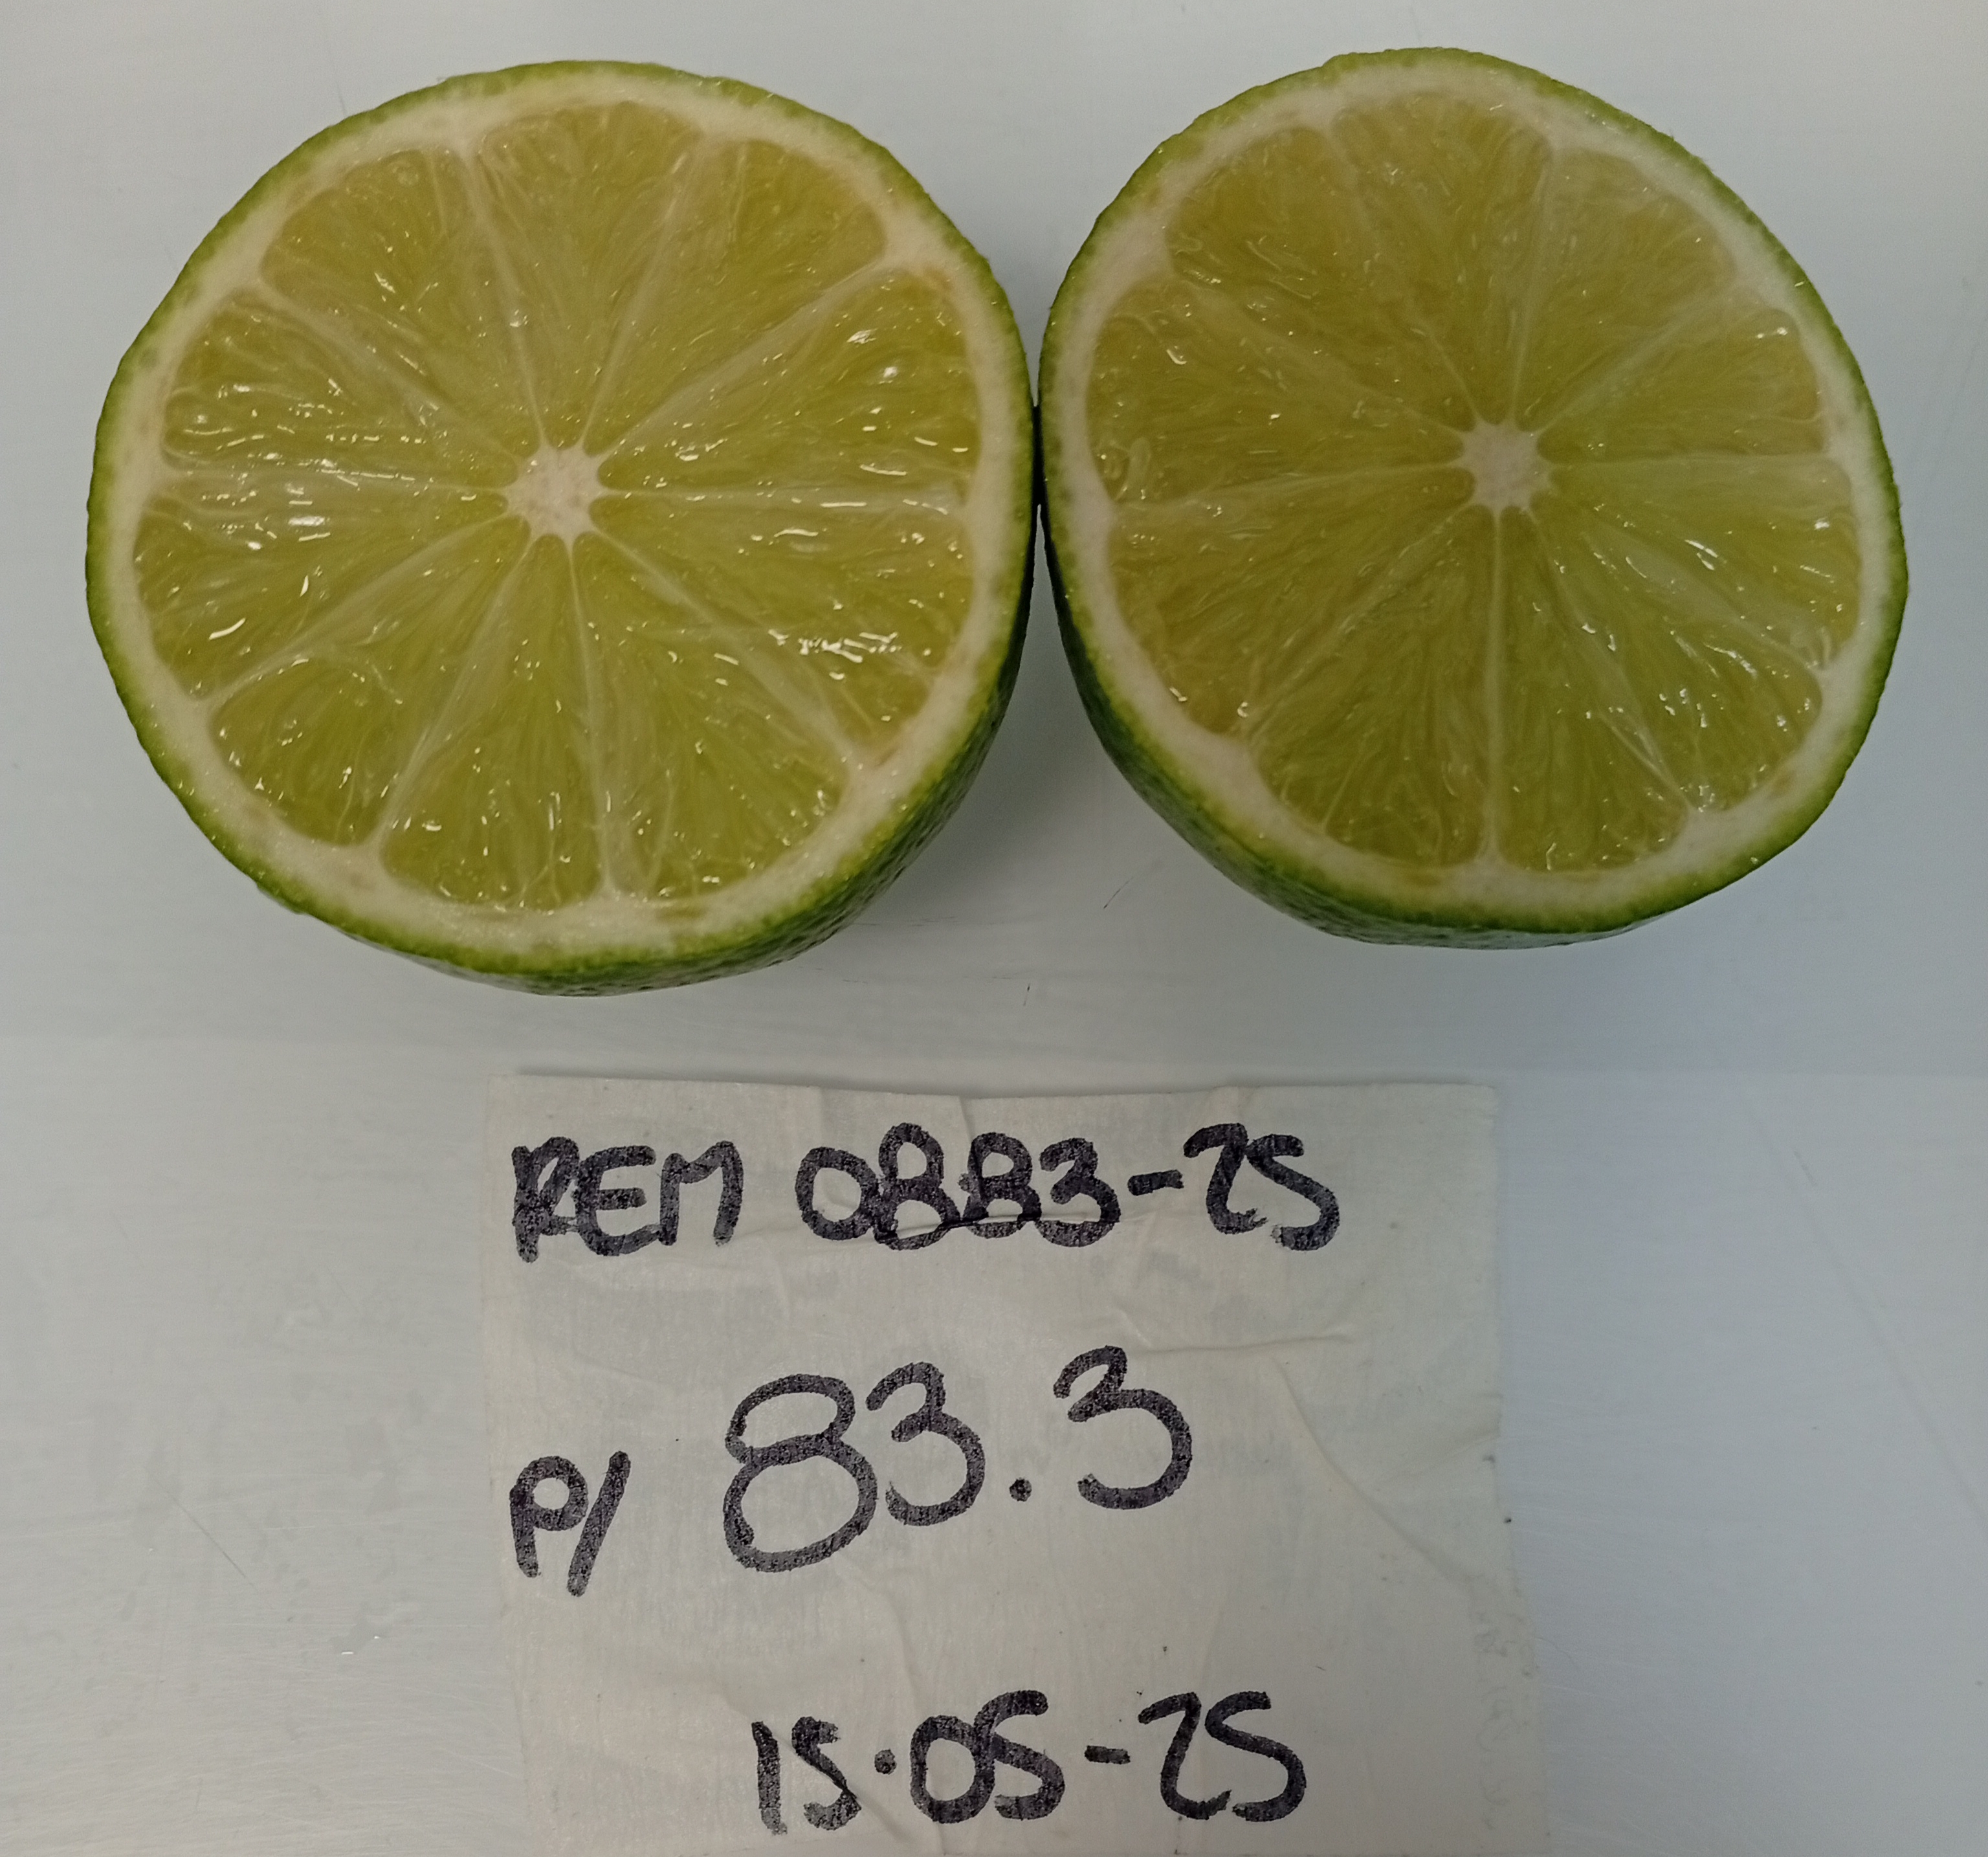 REM 0883-25
P/ 83.3
15.05-25